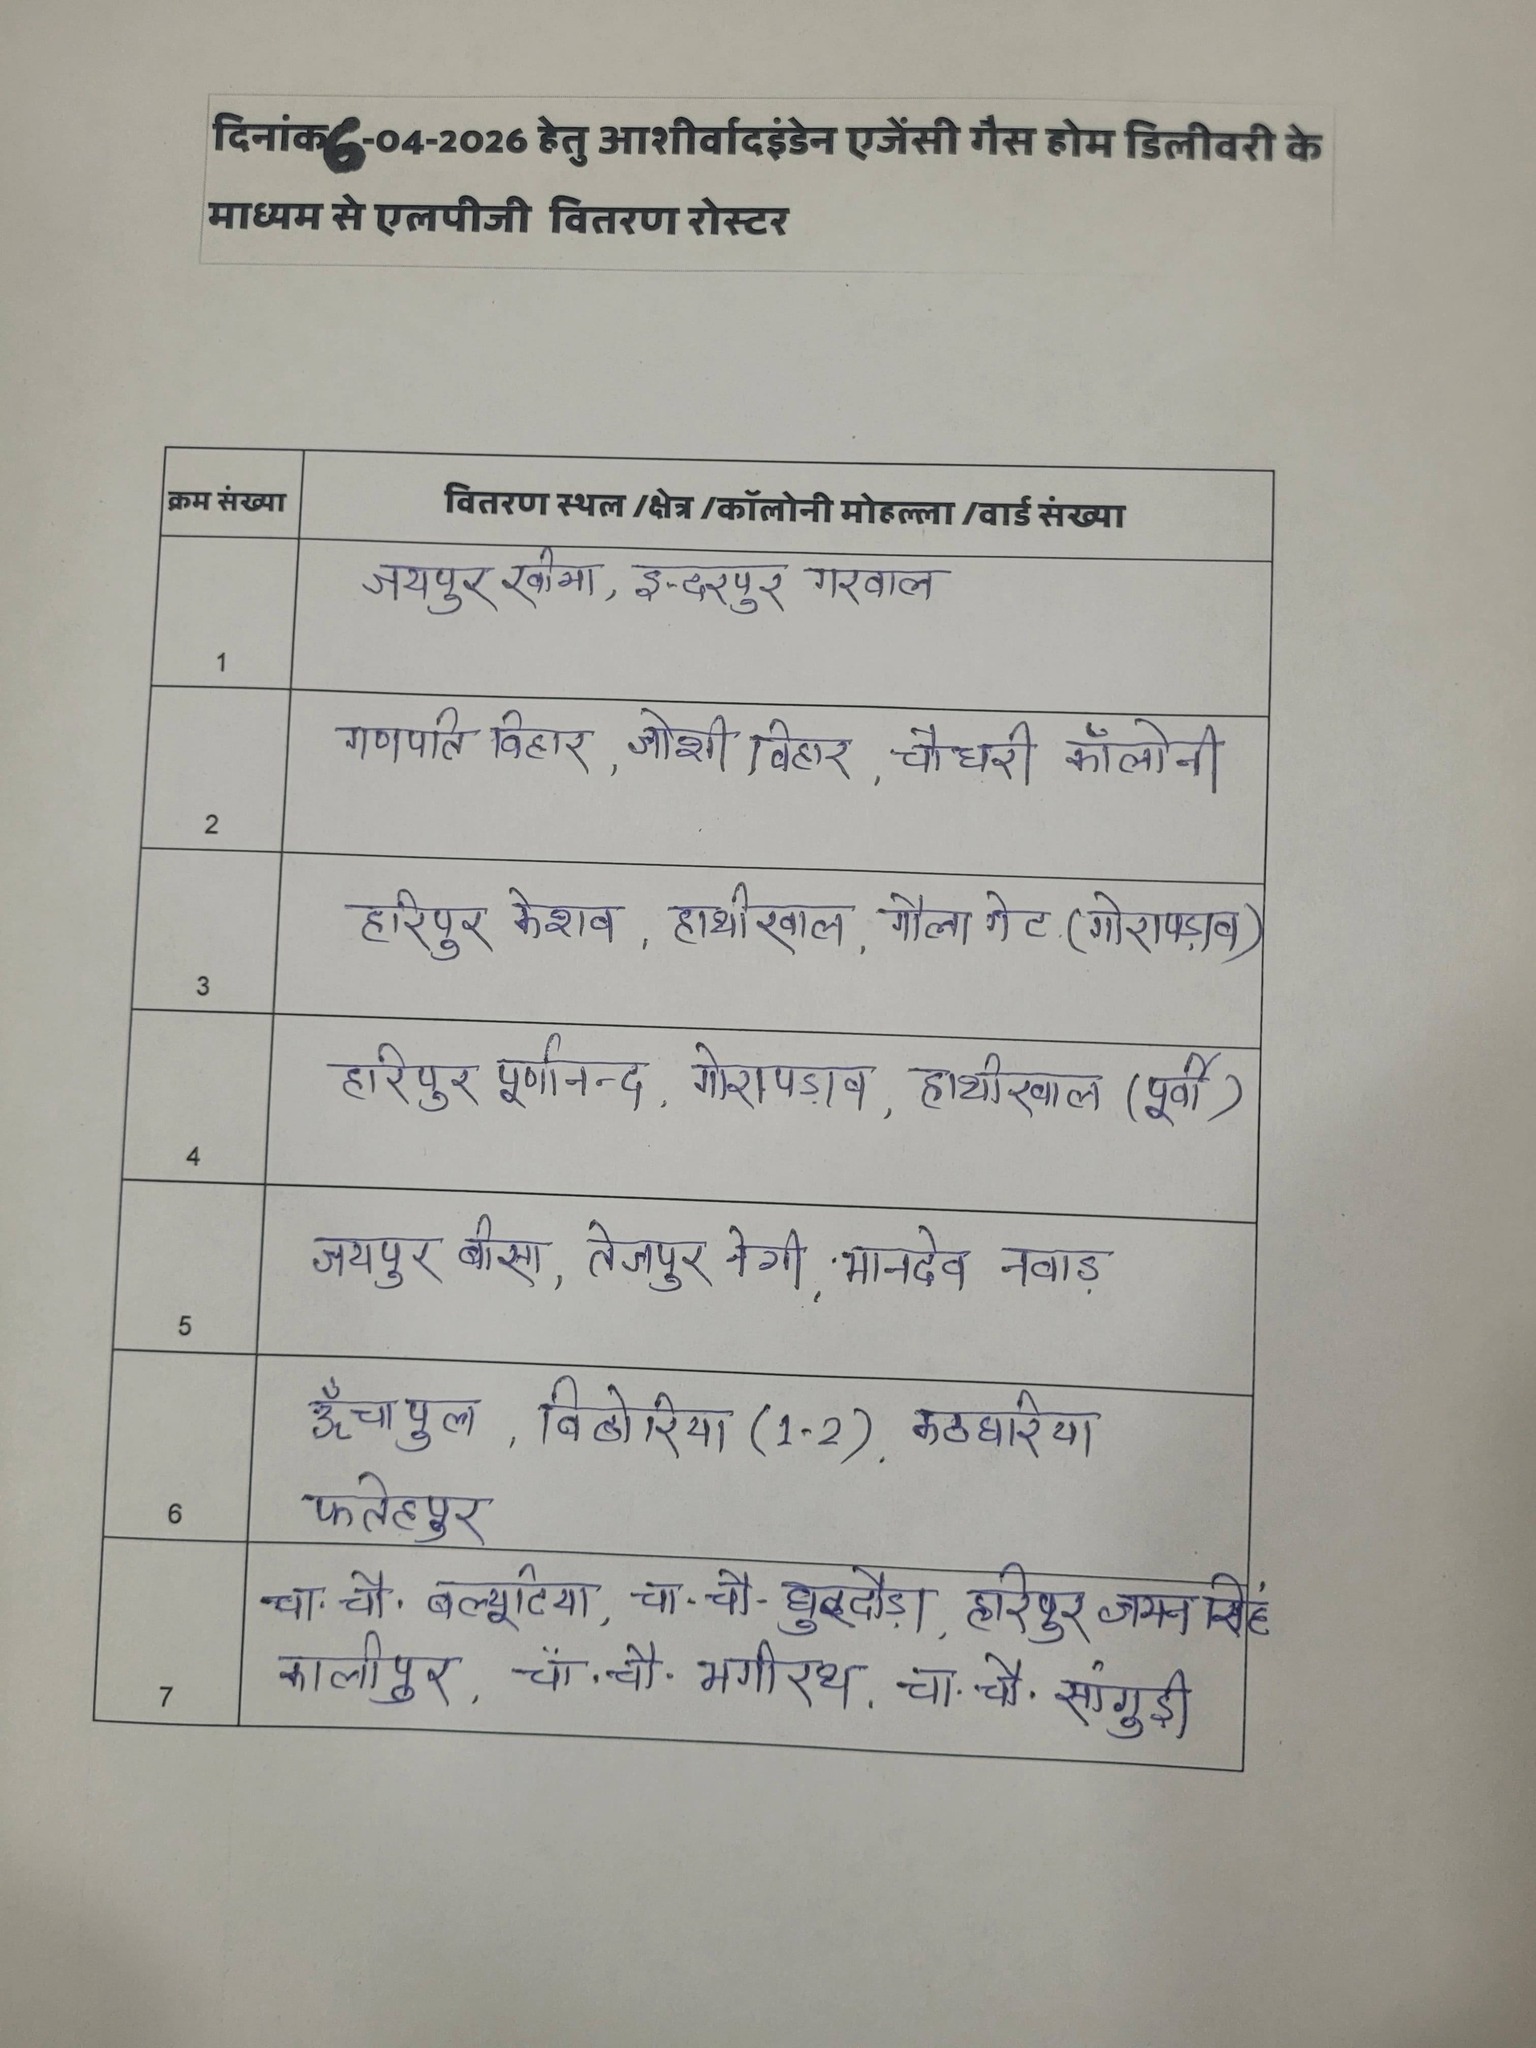 दिनांक 6-04-2026 हेतु आशीर्वादइंडेन एजेंसी गैस होम डिलीवरी के
माध्यम से एलपीजी वितरण रोस्टर
क्रम संख्या वितरण स्थल /क्षेत्र /कॉलोनी मोहल्ला /वार्ड संख्या
1 जयपुर खीमा, इन्दरपुर गरवाल
2 गणपति विहार, जोशी विहार, चौधरी कॉलोनी
3 हरिपुर केशव, हाथीखाल, गौला गेट (गोरापड़ाव)
4 हरिपुर पूर्णानन्द, गोरापड़ाव, हाथीखाल (पूर्वी)
5 जयपुर बीसा, तेजपुर नेगी, मानदेव नवाड़
6 ऊँचापुल, बिठोरिया (1-2), कठघरिया
फतेहपुर
7 चा. चौ. बल्यूटिया, चा. चौ. घुड़दौड़ा, हरिपुर जमन सिंह
कालीपुर, चां. चौ. भगीरथ, चा. चौ. सांगुड़ी